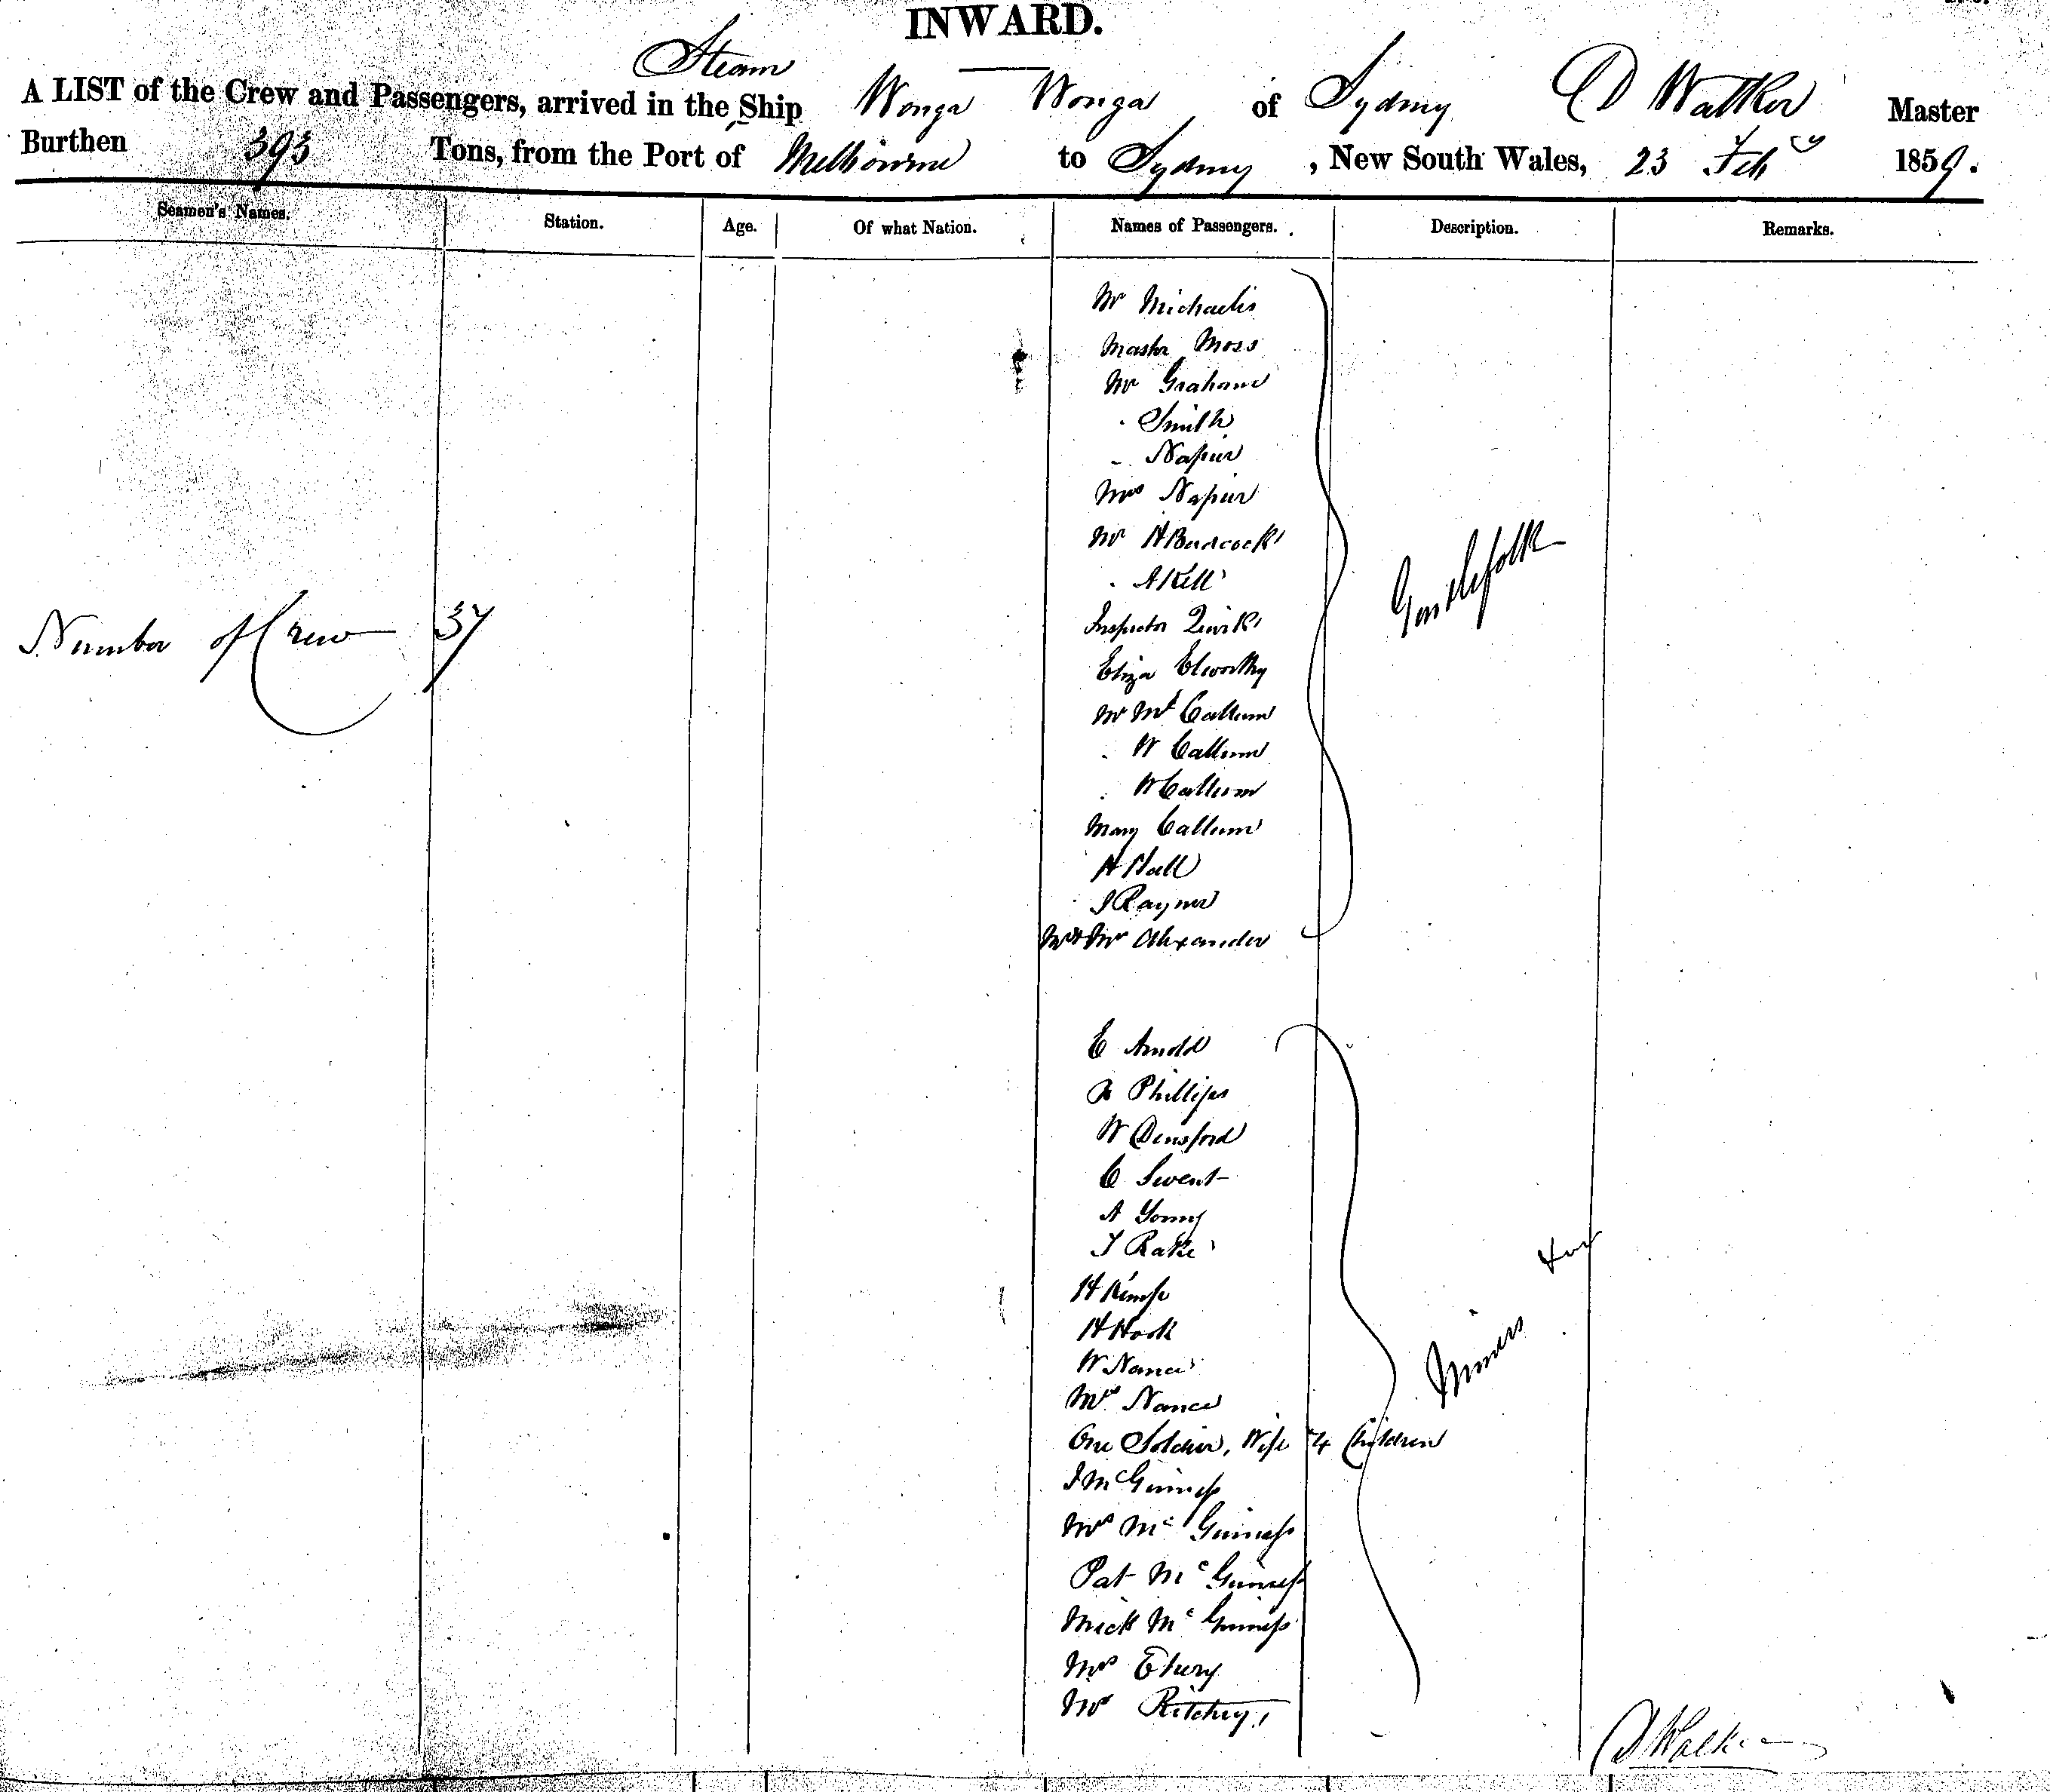 INWARD.
Steam
A LIST of the Crew and Passengers, arrived in the Ship Wonga Wonga of Sydney D Walker Master
Burthen 393 Tons, from the Port of Melbourne to Sydney, New South Wales, 23 Feby 1859.
Seamen's Names. Station. Age. Of what Nation. Names of Passengers. Description. Remarks.
Mr Michaelis
Master Moss
Mr Graham
Smith
" Napier
Mrs Napier
Mr H
A Kell
Gentlefolk
Number of Crew 37
Inspector Quirk
Eliza Elworthy
Callum
W Callum
W Callum
Mary Callum
H Hall
J Rayner
Alexander
E Arnold
Phillips
W Densford
C Swent
A Young
J Rake
H Kemp
H Hook
W Nance
Mrs Nance
Miners &c
One Soldier, Wife 4 Children
J McGuiness
Mrs McGuiness
Pat McGuiness
Mick McGuiness
Mrs
Mr Ritchey
D Walker